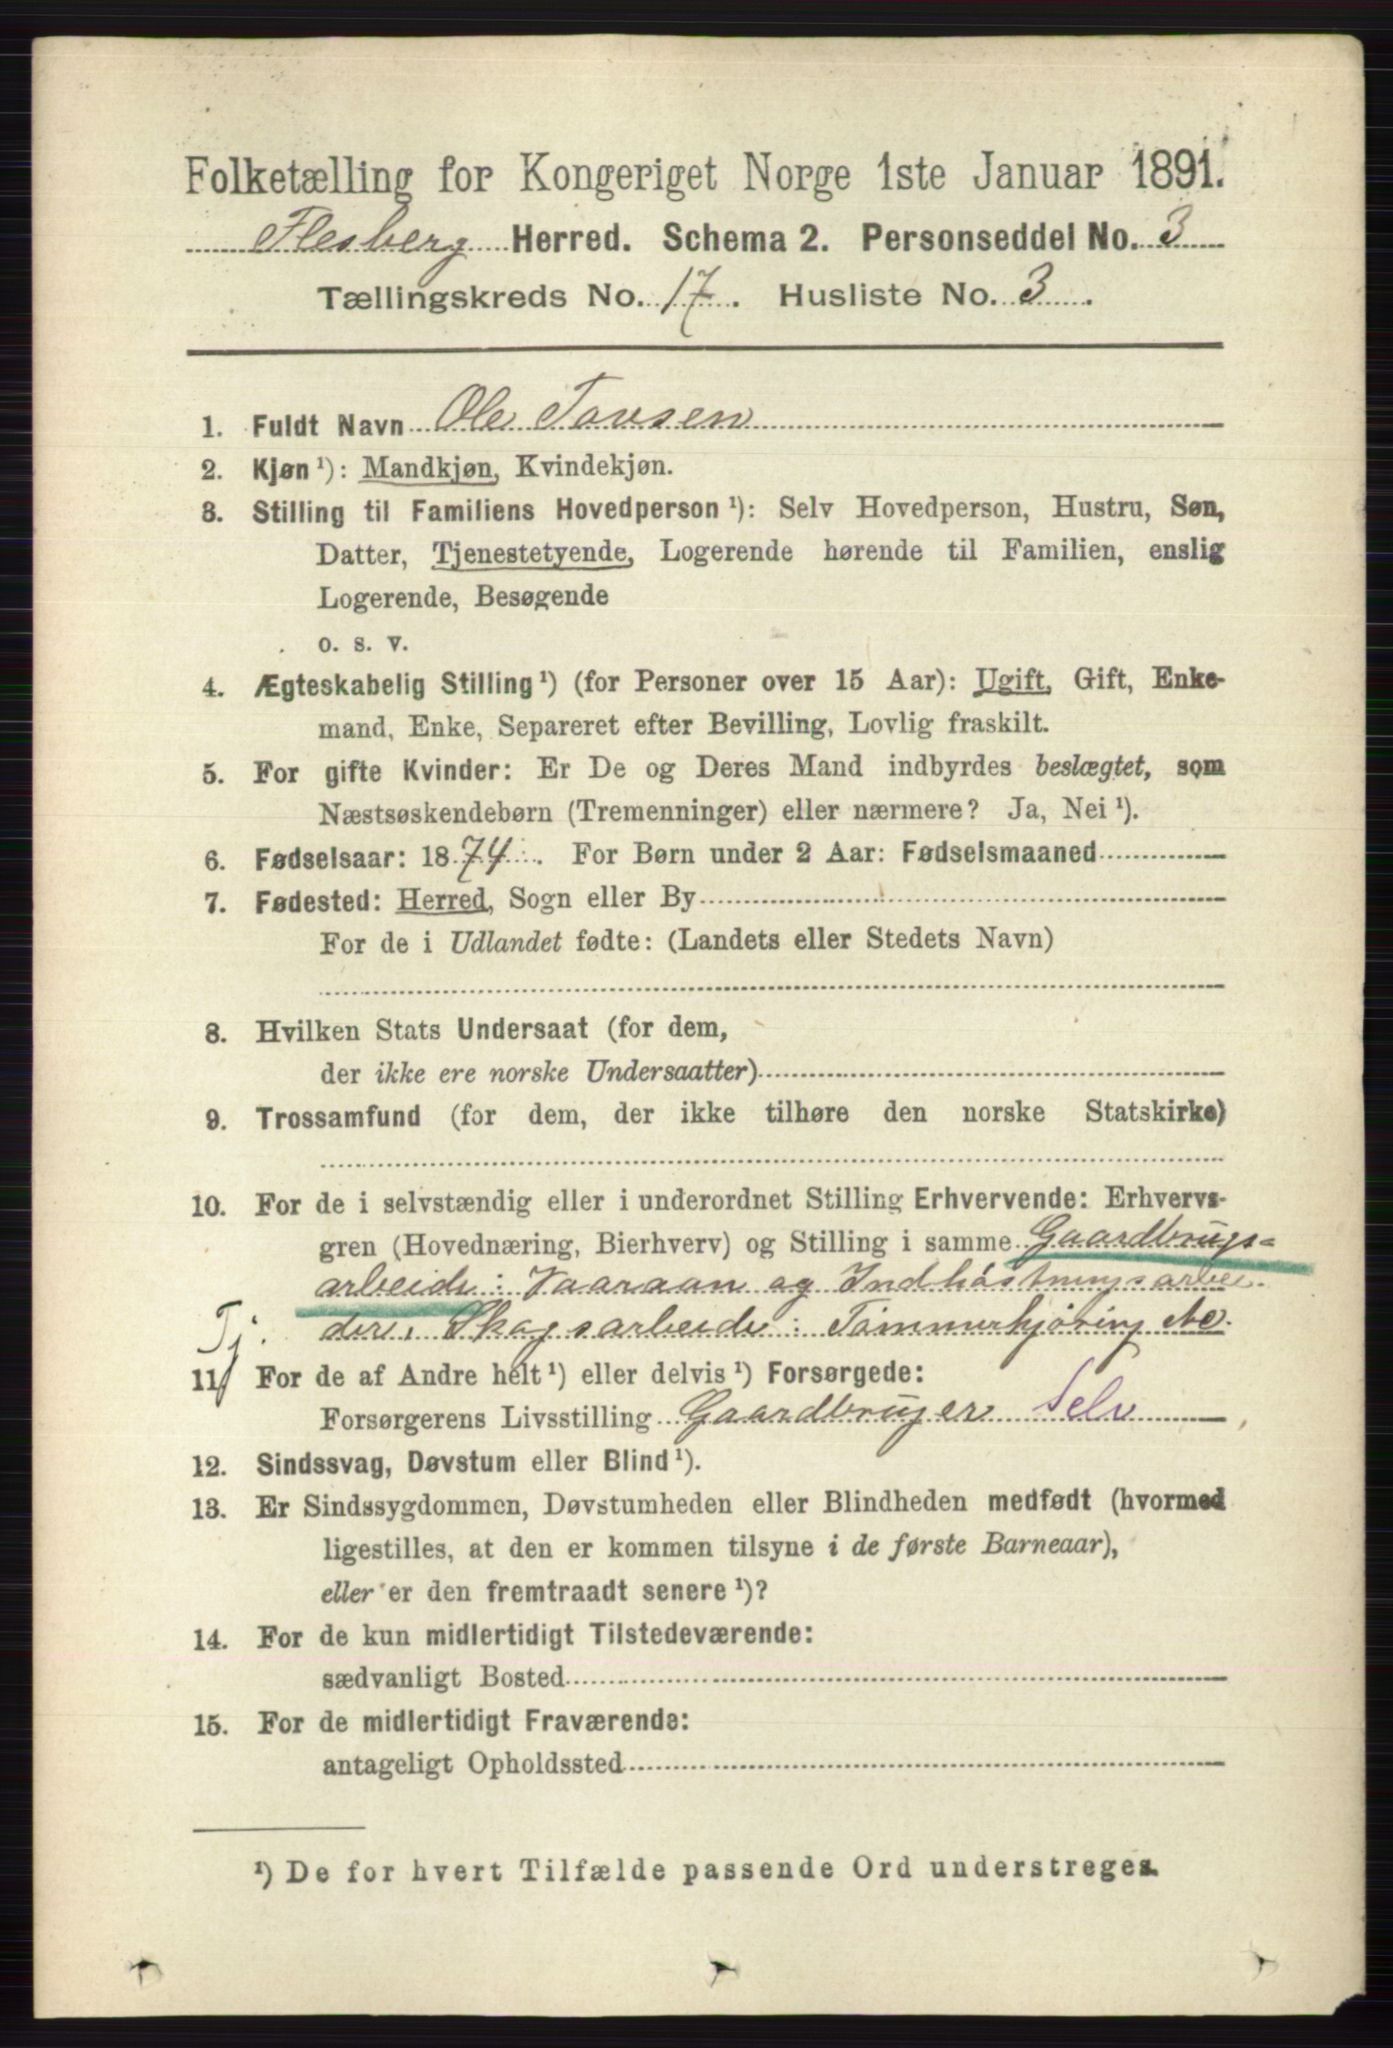 Folketælling for Kongeriget Norge 1ste Januar 1891.
Flesberg Herred. Schema 2. Personseddel No. 3
Tællingskreds No. 17. Husliste No. 3.
1. Fuldt Navn Ole Tovsen
2. Kjøn ¹): Mandkjøn, Kvindekjøn.
3. Stilling til Familiens Hovedperson ¹): Selv Hovedperson, Hustru, Søn,
Datter, Tjenestetyende, Logerende hørende til Familien, enslig
Logerende, Besøgende
o. s. v.
4. Ægteskabelig Stilling ¹) (for Personer over 15 Aar): Ugift, Gift, Enke-
mand, Enke, Separeret efter Bevilling, Lovlig fraskilt.
5. For gifte Kvinder: Er De og Deres Mand indbyrdes beslægtet, som
Næstsøskendebørn (Tremenninger) eller nærmere? Ja, Nei ¹).
6. Fødselsaar: 1874. For Børn under 2 Aar: Fødselsmaaned
7. Fødested: Herred, Sogn eller By
For de i Udlandet fødte: (Landets eller Stedets Navn)
8. Hvilken Stats Undersaat (for dem,
der ikke ere norske Undersaatter)
9. Trossamfund (for dem, der ikke tilhøre den norske Statskirke)
10. For de i selvstændig eller i underordnet Stilling Erhvervende: Erhvervs-
gren (Hovednæring, Bierhverv) og Stilling i samme Gaardbrugs=
arbeide: Vaaraan og Indhöstningsarbei-
Tj. der, Skogsarbeide: Tömmerkjöring &c.
11. For de af Andre helt ¹) eller delvis ¹) Forsørgede:
Forsørgerens Livsstilling Gaardbruger Selv
12. Sindssvag, Døvstum eller Blind ¹).
13. Er Sindssygdommen, Døvstumheden eller Blindheden medfødt (hvormed
ligestilles, at den er kommen tilsyne i de første Barneaar),
eller er den fremtraadt senere ¹)?
14. For de kun midlertidigt Tilstedeværende:
sædvanligt Bosted
15. For de midlertidigt Fraværende:
antageligt Opholdssted
¹) De for hvert Tilfælde passende Ord understreges.